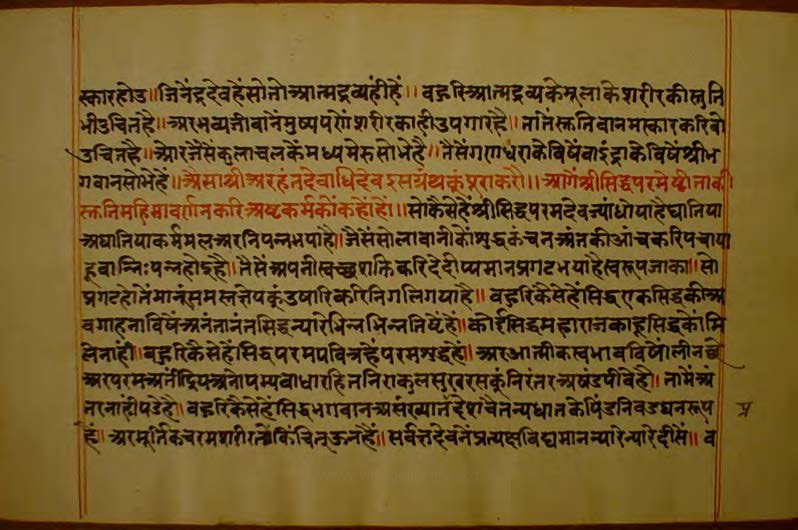 स्कारहोउ॥ जिनेंद्रदेवहैंसोतोआत्मद्रव्यहीहैं॥ बहुरिआत्मद्रव्यकेमूलाकेशरीरकीस्तुति
भीउचितहै॥ अरभव्यजीवांनैंमुष्यपणेंशरीरकाहीउपगारहै॥ तातेंस्तुतिवानमस्कारकरिवो
उचितहै॥ ओरजैसेंकुलाचलकेंमध्यमेरुसोभैहै॥ तैसेंगणधराकेविषेंवाइंद्राकेविषेंश्रीभ
गवानसोभैहैं॥ असाश्रीअरहंतदेवाधिदेवइसग्रंथकूंपूराकरौ॥ आगेंश्रीसिद्धपरमेष्टीताकी
स्तुतिमहिमावर्णनकरिअष्टकर्मकौंकहौंहौं॥ सोकैसेहैंश्रीसिद्धपरमदेवज्यांधोयाहैघातिया
अघातियाकर्ममलअरनिपन्नभयाहै॥ जैसेंसोलावानीकौशुद्धकंचनअंतकीआंचकरिपचाया
हूवानिःपन्नहोइहै॥ तैसेंअपनीस्वच्छशक्तिकरिदेदीप्यमानप्रगटभयाहैस्वरूपजाका॥ सो
प्रगटहोतेंमानूंसमस्तज्ञेयकूंउषारिकरिनिगलिगयाहै॥ बहुरिकैसेहैंसिद्धएकसिद्धकीअ
वगाहनाविषेंअनंतानंतसिद्धन्यारेभिन्नभिन्नतिष्टेंहैं॥ कोईसिद्धमहाराजकाहूसिद्धकेंमि
लेनांही॥ बहुरिकैसेहैंसिद्धपरमपवित्रहैंपरमशुद्धहैं॥ अरआत्मीकस्वभावविषेंलीनछै
अरपरमअतींद्रियअनोपम्यबाधारहितनिराकुलसुखरसकूंनिरंतरअषंडपीवैहै॥ तामेंअं
तरनांहीपडैहै॥ बहुरिकैसेहैंसिद्धभगवानअसंख्यातप्रदेशचैतन्यधातकेपिंडनिवडघनरूप
हैं॥ अरमूर्तिकचरमशरीरतेंकिंचित्ऊनहैं॥ सर्वज्ञदेवनेंप्रत्यक्षविद्यमानन्यारेन्यारेदीसें॥ ब